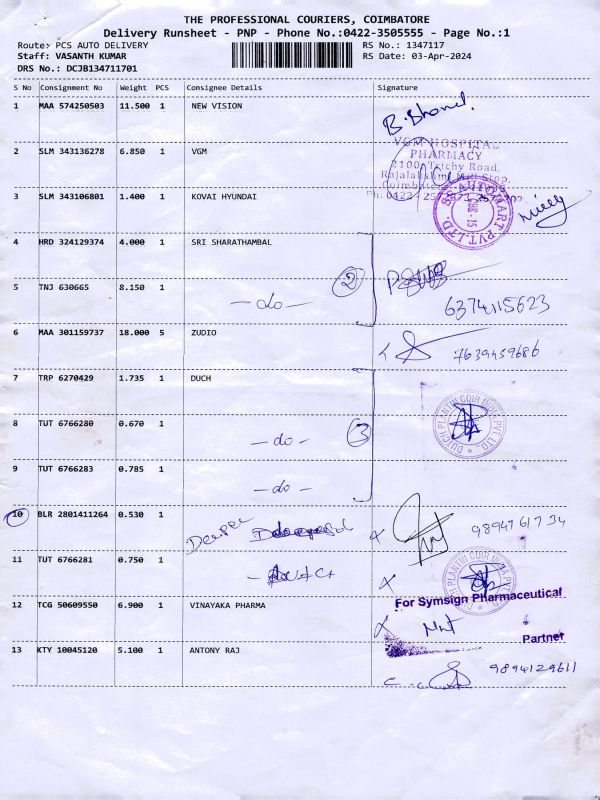 THE PROFESSIONAL COURIERS, COIMBATORE
Delivery Runsheet - PNP - Phone No.:0422-3505555 - Page No.:1
Route: PCS AUTO DELIVERY
RS No.: 1347117
Staff: VASANTH KUMAR
RS Date: 03-Apr-2024
DRS No.: DCJB134711701
S No Consignment No Weight PCS Consignee Details Signature
1 MAA 574250503 11.500 1 NEW VISION
2 SLM 343136278 6.850 1 VGM
VGM HOSPITAL
PHARMACY
2100, Trichy Road,
Rajalakshmi Mill Stop,
3 SLM 343106801 1.400 1 KOVAI HYUNDAI
4 HRD 324129374 4.000 1 SRI SHARATHAMBAL
5 TNJ 630665 8.150 1 -do- 2
6374115623
6 MAA 301159737 18.000 5 ZUDIO 7639459686
7 TRP 6270429 1.735 1 DUCH
DUTCH PLANTIN COIR INDIA PVT LTD.,
8 TUT 6766280 0.670 1 -do- 3
9 TUT 6766283 0.785 1 -do-
10 BLR 2801411264 0.530 1
11 TUT 6766281 0.750 1
DUTCH PLANTIN COIR INDIA PVT LTD.,
12 TCG 50609550 6.900 1 VINAYAKA PHARMA
For Symsign Pharmaceutical
Partner
13 KTY 10045120 5.100 1 ANTONY RAJ 9894129611